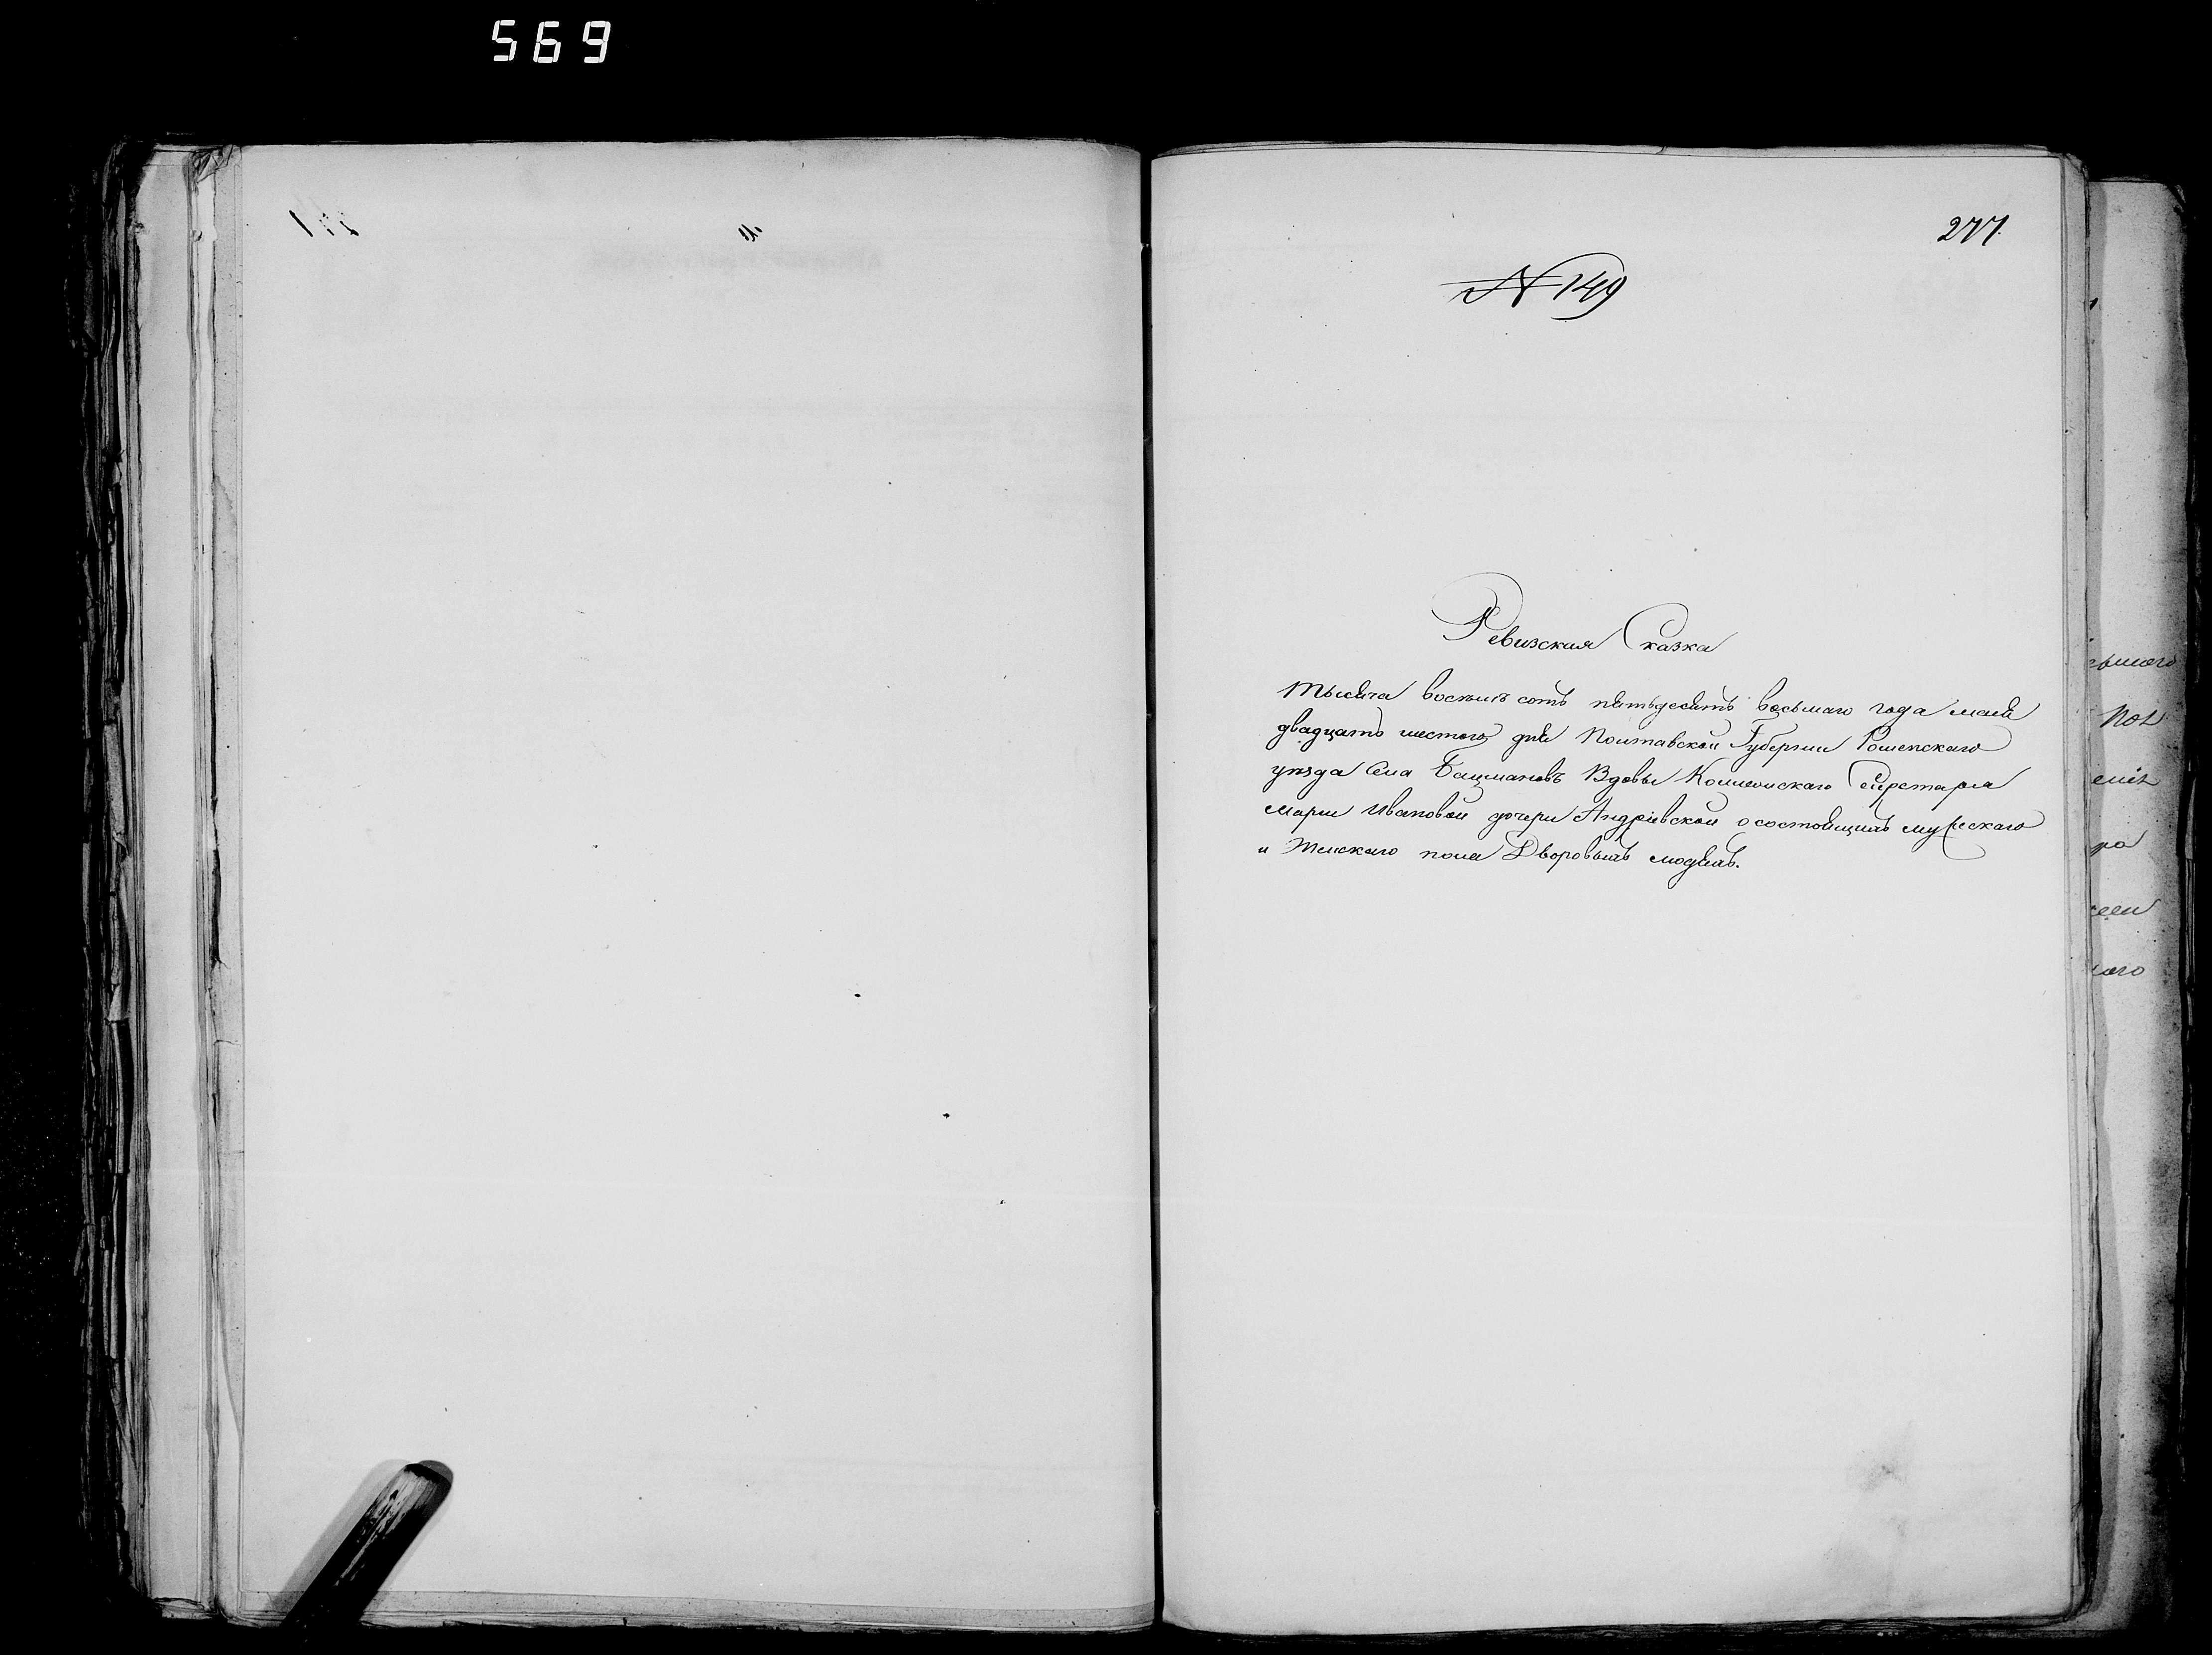 569
277
№ 149
Ревизская Сказка
Тысяча восемь сотъ пятьдесятъ восьмаго года мая
двадцать шестого дня Полтавской Губернии Роменскаго
уѣзда Села Бацмановъ Вдовы Коллежскаго Секретаря
Марии Ивановой дочери Андріевской о состоящихъ мужескаго
и Женскаго пола Дворовыхъ людяхъ.